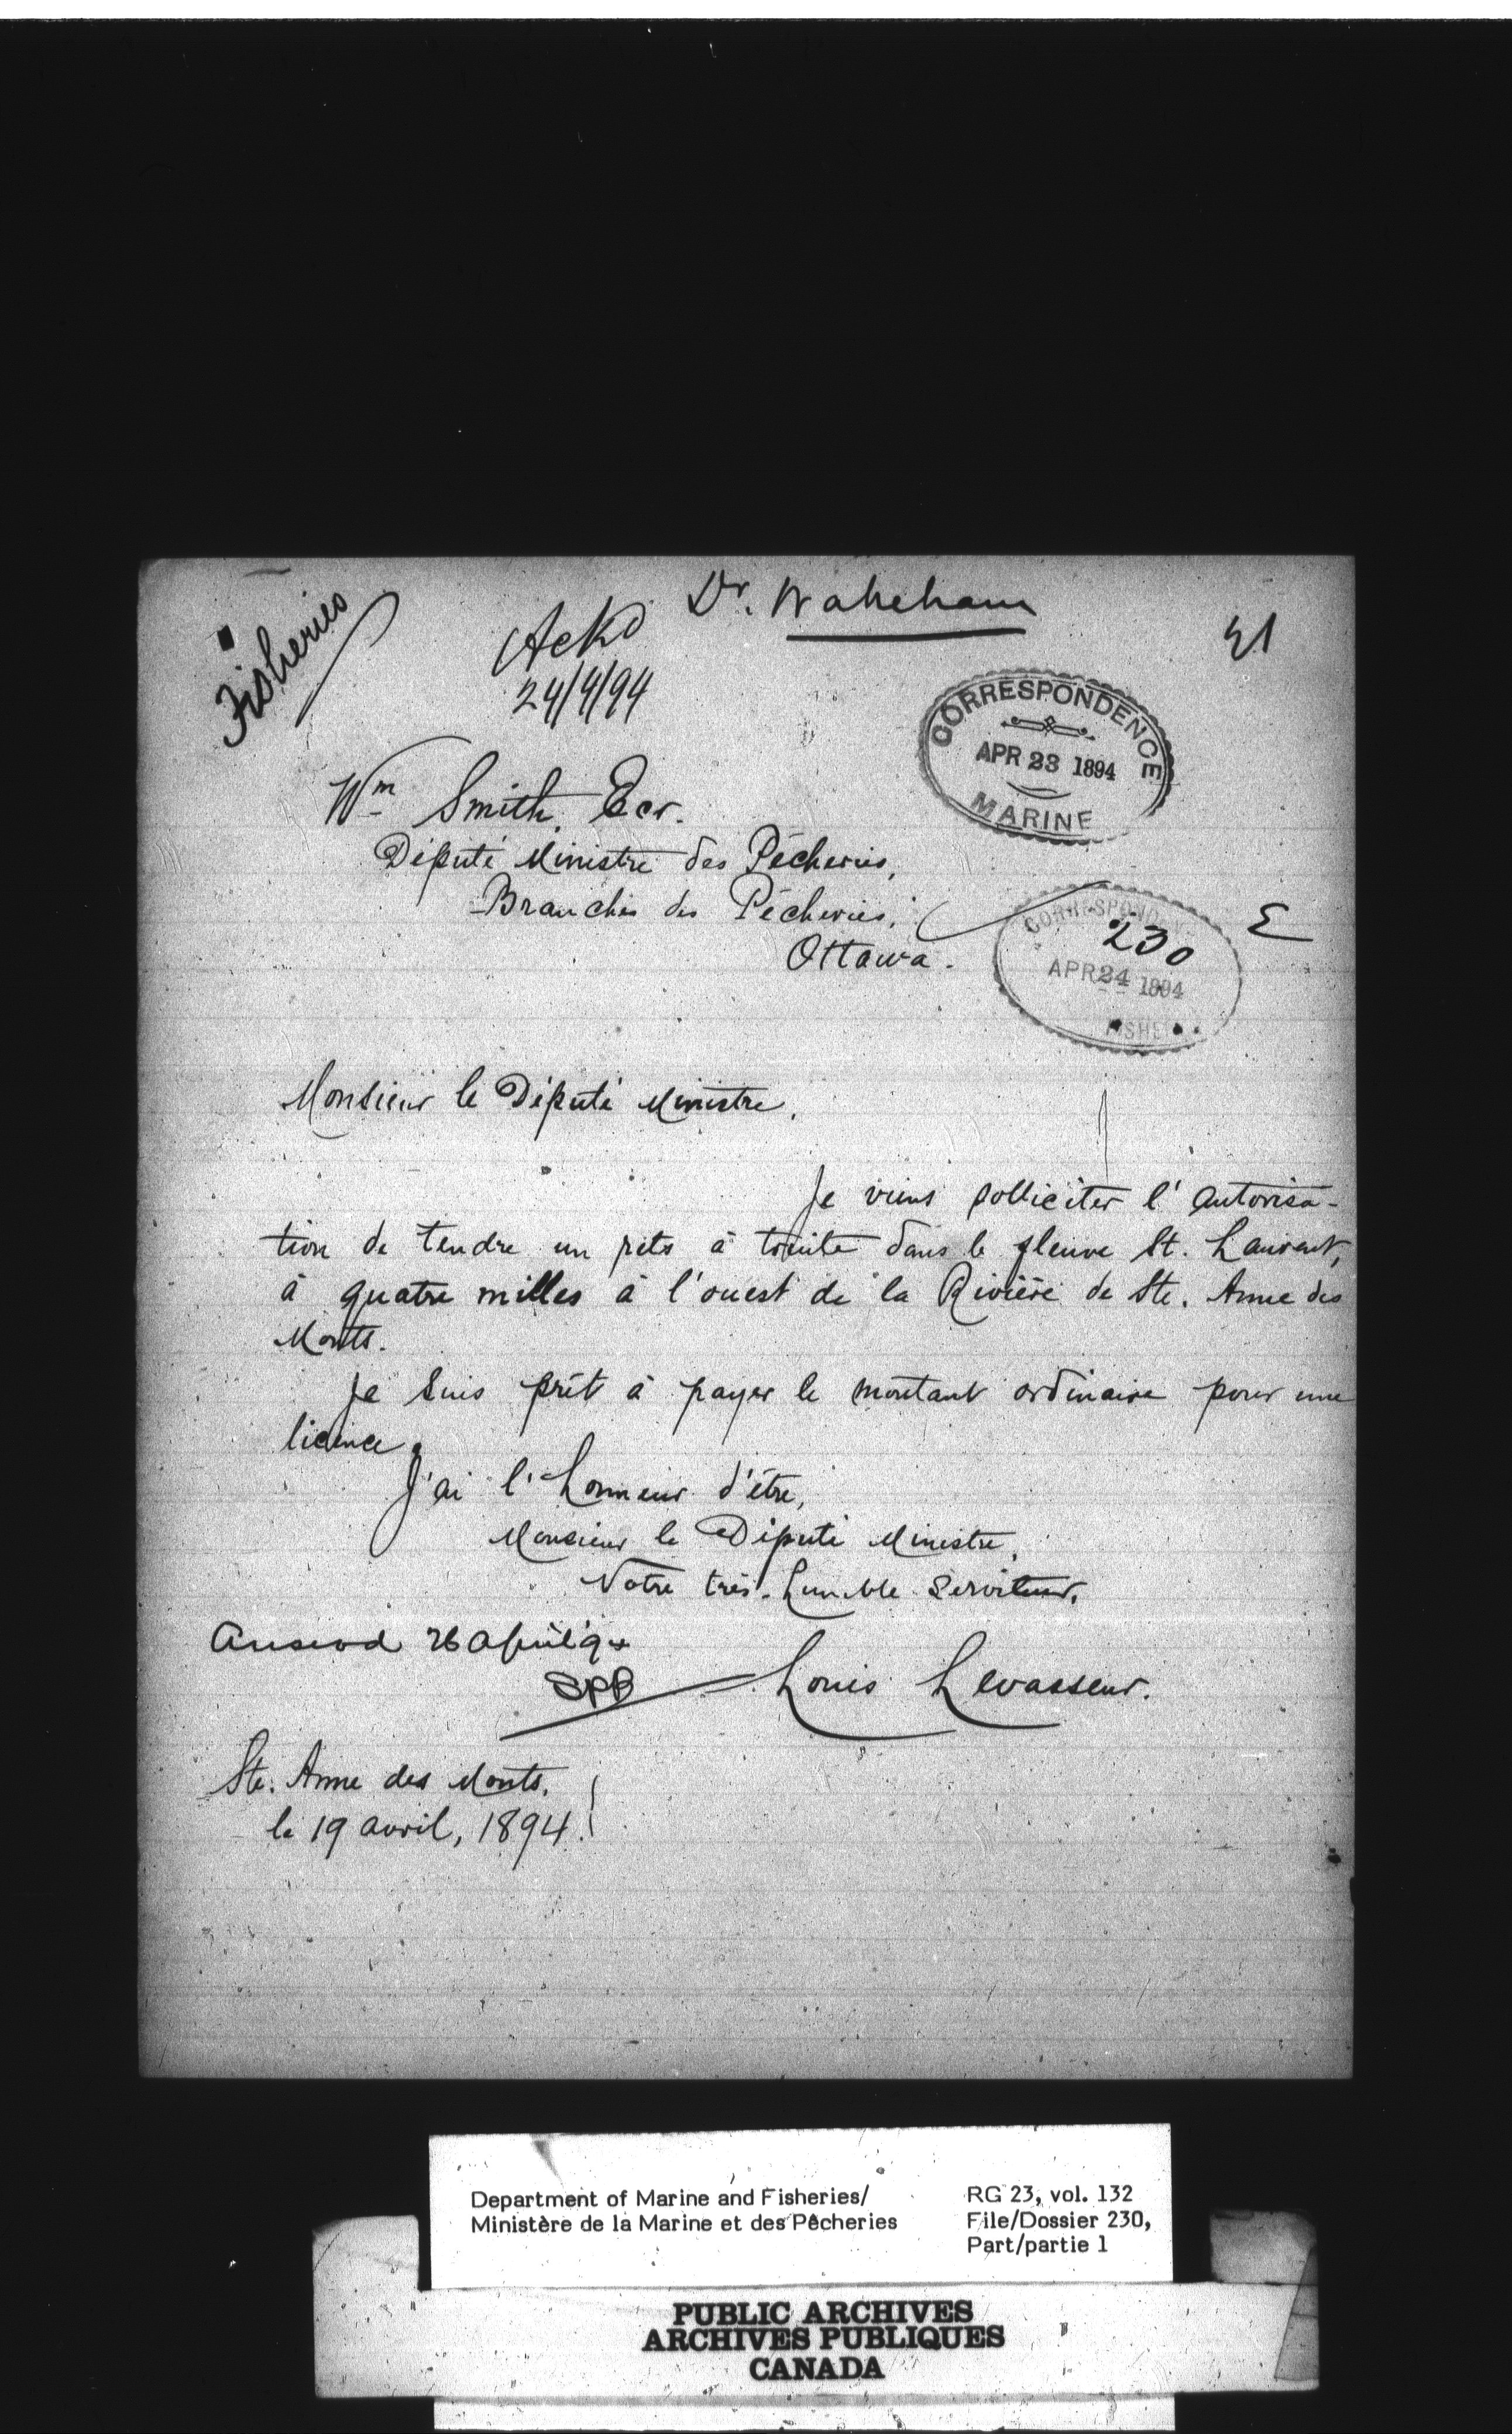 Fisheries
Ackd
24/4/94
Dr. Wakeham
CORRESPONDENCE
APR 23 1894
MARINE
Wm Smith, Ecr.
Député Ministre des Pêcheries,
Branche des Pêcheries,
Ottawa.
CORRESPONDEN
230
APR 24 1894
FISHE
Monsieur le Député Ministre,
Je viens solliciter l'autorisa-
tion de tendre un rets à truite dans le fleuve St. Laurent,
à quatre milles à l'ouest de la Rivière de Ste. Anne des
Monts.
Je suis prêt à payer le montant ordinaire pour une
licence.
J'ai l'honneur d'être,
Monsieur le Député Ministre,
Votre très-humble serviteur,
Louis Levasseur.
Ansevd 26 April 94
SPB
Ste. Anne des Monts,
le 19 avril, 1894.
Department of Marine and Fisheries/
Ministère de la Marine et des Pêcheries
RG 23, vol. 132
File/Dossier 230,
Part/partie 1
PUBLIC ARCHIVES
ARCHIVES PUBLIQUES
CANADA